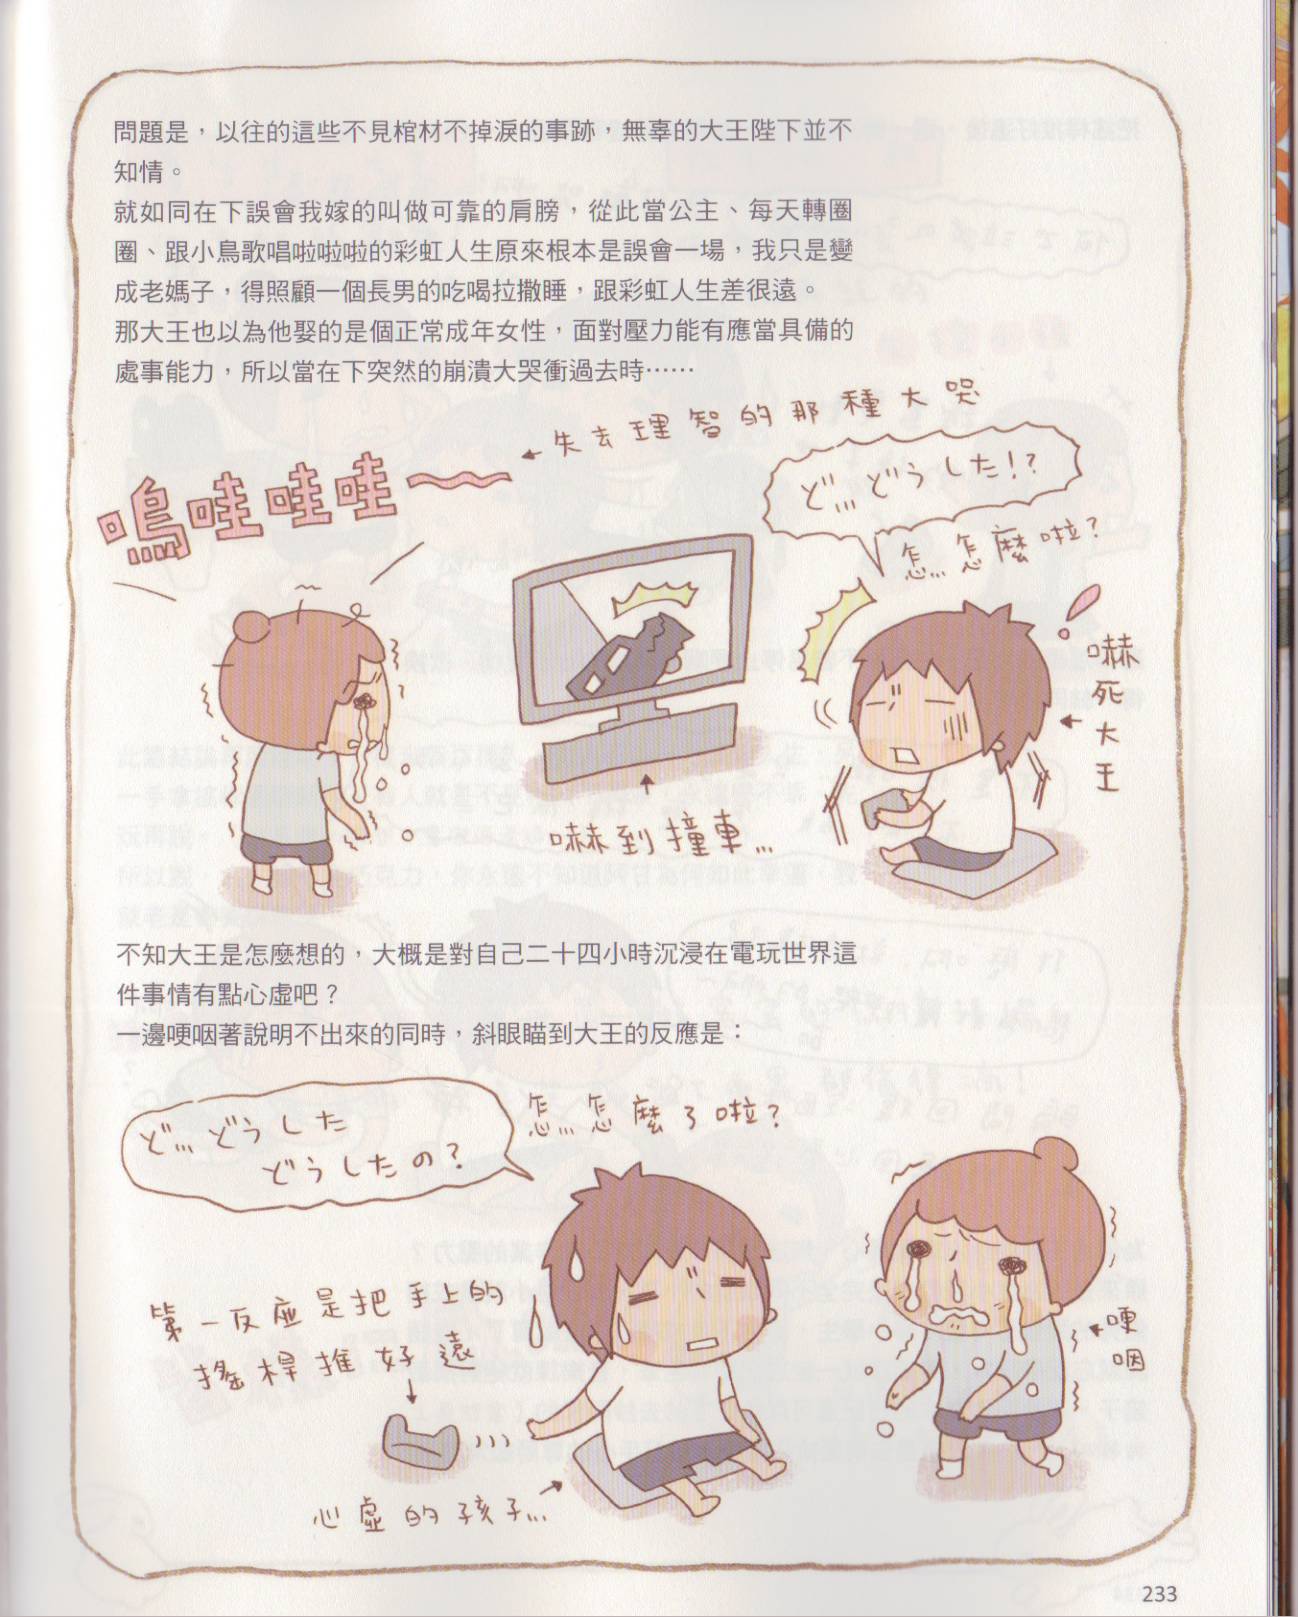 問題是，以往的這些不見棺材不掉淚的事跡，無辜的大王陛下並不
知情。
就如同在下誤會我嫁的叫做可靠的肩膀，從此當公主、每天轉圈
圈、跟小鳥歌唱啦啦啦的彩虹人生原來根本是誤會一場，我只是變
成老媽子，得照顧一個長男的吃喝拉撒睡，跟彩虹人生差很遠。
那大王也以為他娶的是個正常成年女性，面對壓力能有應當具備的
處事能力，所以當在下突然的崩潰大哭衝過去時⋯⋯
失去理智的那種大哭
嗚哇哇哇～
ど...どうした!?
怎...怎麼啦?
嚇死大王
嚇到撞車...
不知大王是怎麼想的，大概是對自己二十四小時沉浸在電玩世界這
件事情有點心虛吧？
一邊哽咽著說明不出來的同時，斜眼瞄到大王的反應是：
ど...どうした
どうしたの?
怎...怎麼了啦?
第一反應是把手上的
搖桿推好遠
哽咽
心虛的孩子...
233